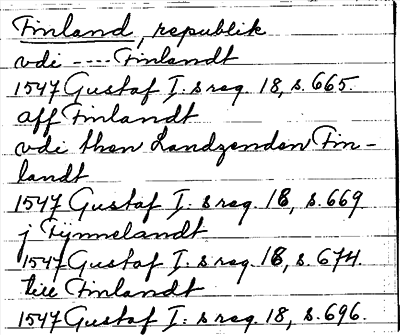 Finland, republik
vdi ---- Finlandt
1547 Gustaf I:s reg. 18, s. 665.
aff Finlandt
vdi then Landzenden Fin-
landt
1547 Gustaf I:s reg. 18, s. 669
j Fijnnelandt
1547 Gustaf I:s reg. 18, s. 674.
till Finlandt
1547 Gustaf I:s reg. 18, s. 696.